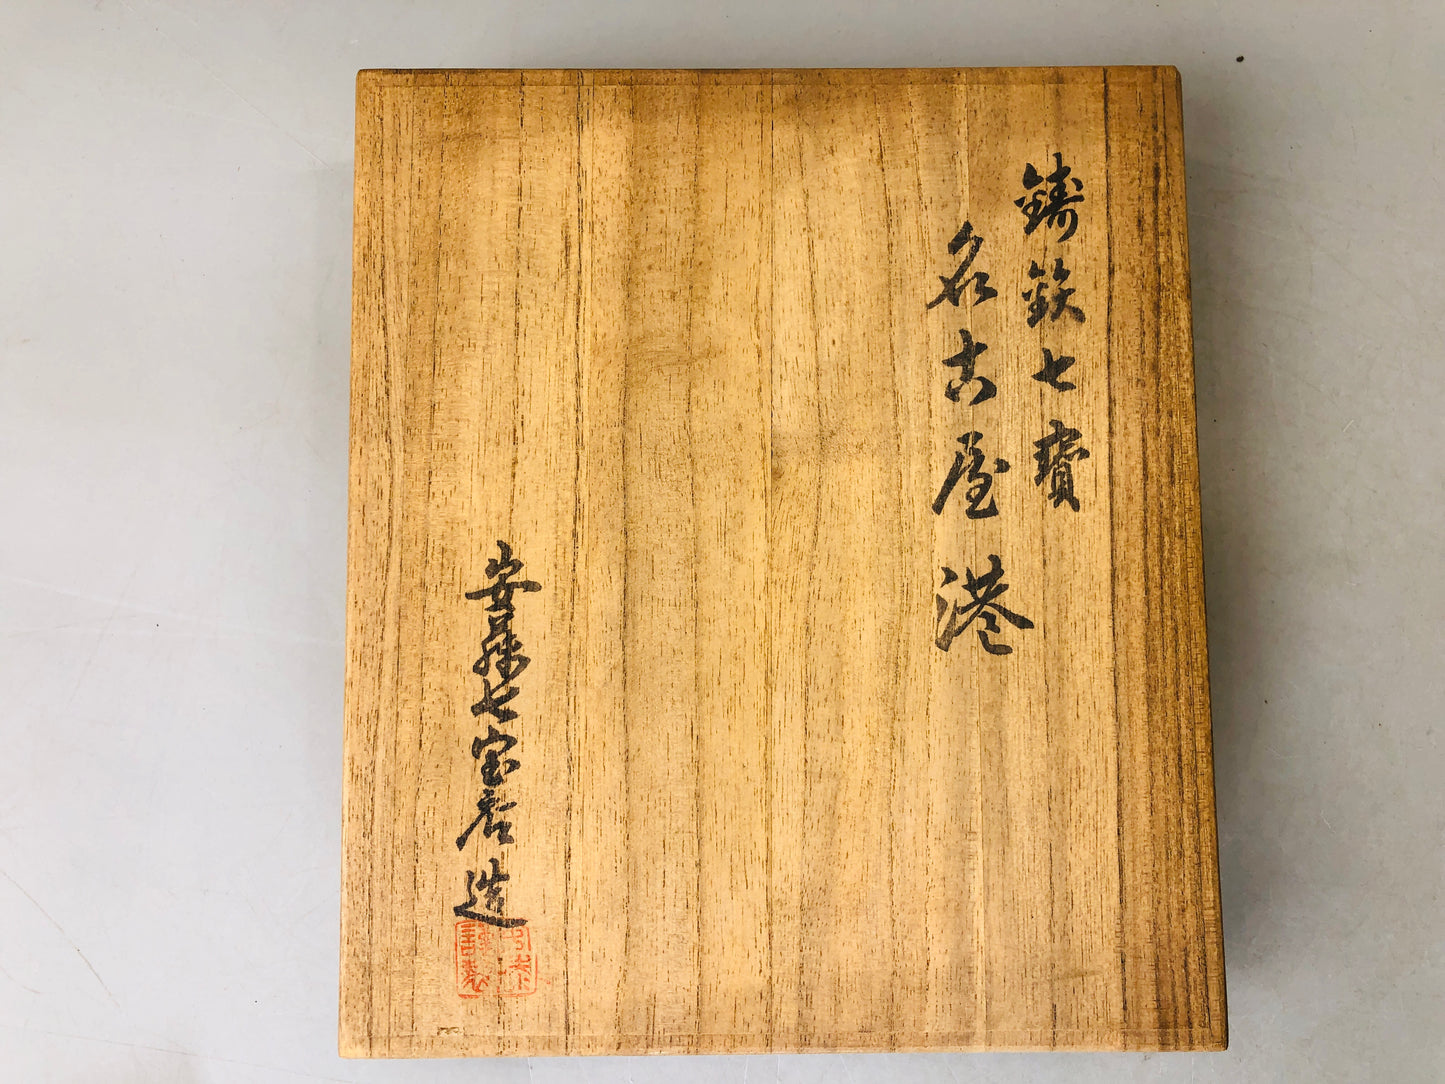 鋳鉄七寳
名古屋港
安藤七宝店造